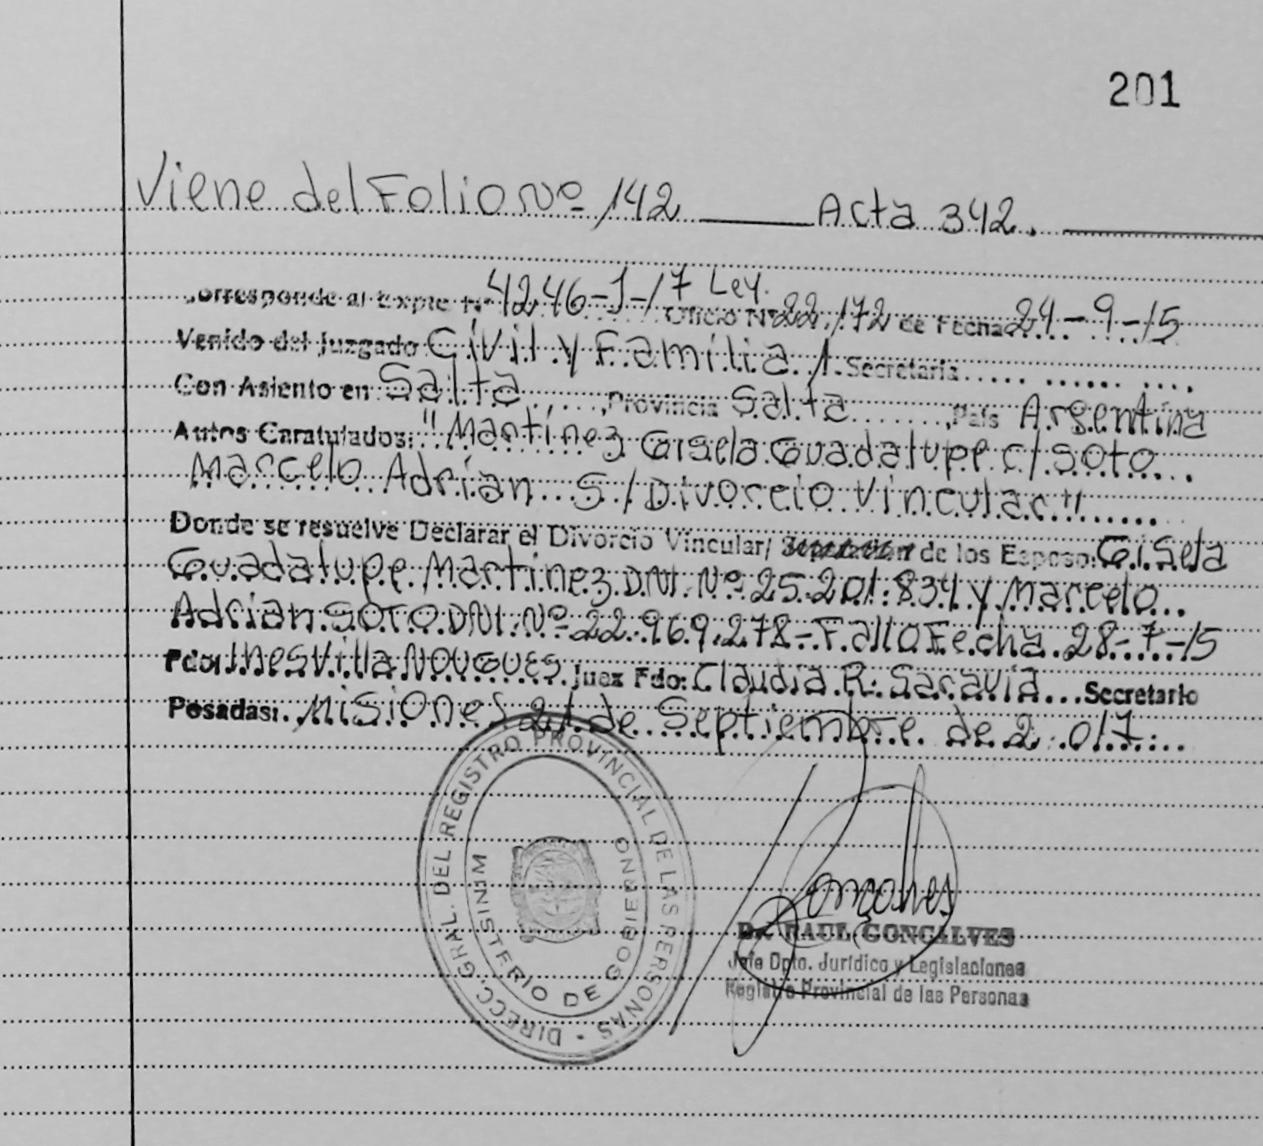 201
Viene del Folio Nº 142 Acta 342.
Corresponde al Expte Nº 4246-J-17 Ley. Oficio Nº 22.172 de Fecha 24-9-15
Venido del Juzgado Civil y Familia 1. Secretaría
Con Asiento en Salta, Provincia Salta, País Argentina
Autos Caratulados: "Martínez Gisela Guadalupe c/ Soto
Marcelo Adrian S/ Divorcio Vincular"
Donde se resuelve Declarar el Divorcio Vincular/ de los Esposo: Gisela
Guadalupe Martínez DNI. Nº 25.201.834 y Marcelo
Adrian SOTO DNI. Nº 22.969.278 - Fallo Fecha 28-7-15
Fdo: Ines Villa NOUGUES Juez Fdo: Claudia R. Saravia Secretario
Posadas: Misiones 21 de Septiembre de 2.017
DIRECC. GRAL. DEL REGISTRO PROVINCIAL DE LAS PERSONAS -
MINISTERIO DE GOBIERNO
Goncalves
Dr. RAUL GONCALVES
Jefe Dpto. Jurídico y Legislaciones
Registro Provincial de las Personas